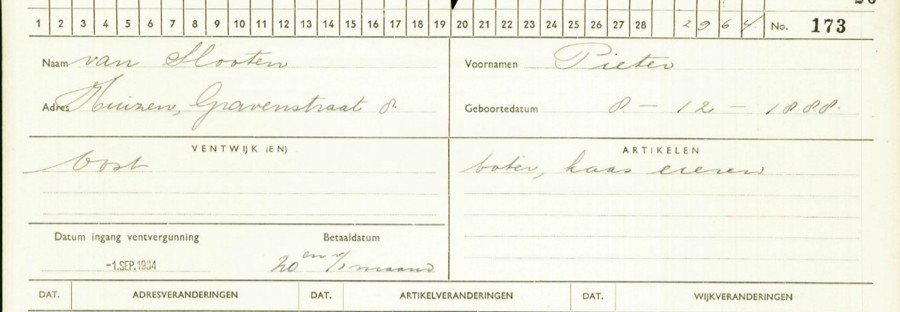 1 2 3 4 5 6 7 8 9 10 11 12 13 14 15 16 17 18 19 20 21 22 23 24 25 26 27 28 2964 No. 173
Naam van Slooten Voornamen Pieter
Adres Huizen, Gravenstraat 8 Geboortedatum 8 - 12 - 1888.
VENTWIJK (EN) ARTIKELEN
Oost boter, kaas eieren
Datum ingang ventvergunning Betaaldatum
-1. SEP. 1934 20en v/d maand
DAT. ADRESVERANDERINGEN DAT. ARTIKELVERANDERINGEN DAT. WIJKVERANDERINGEN